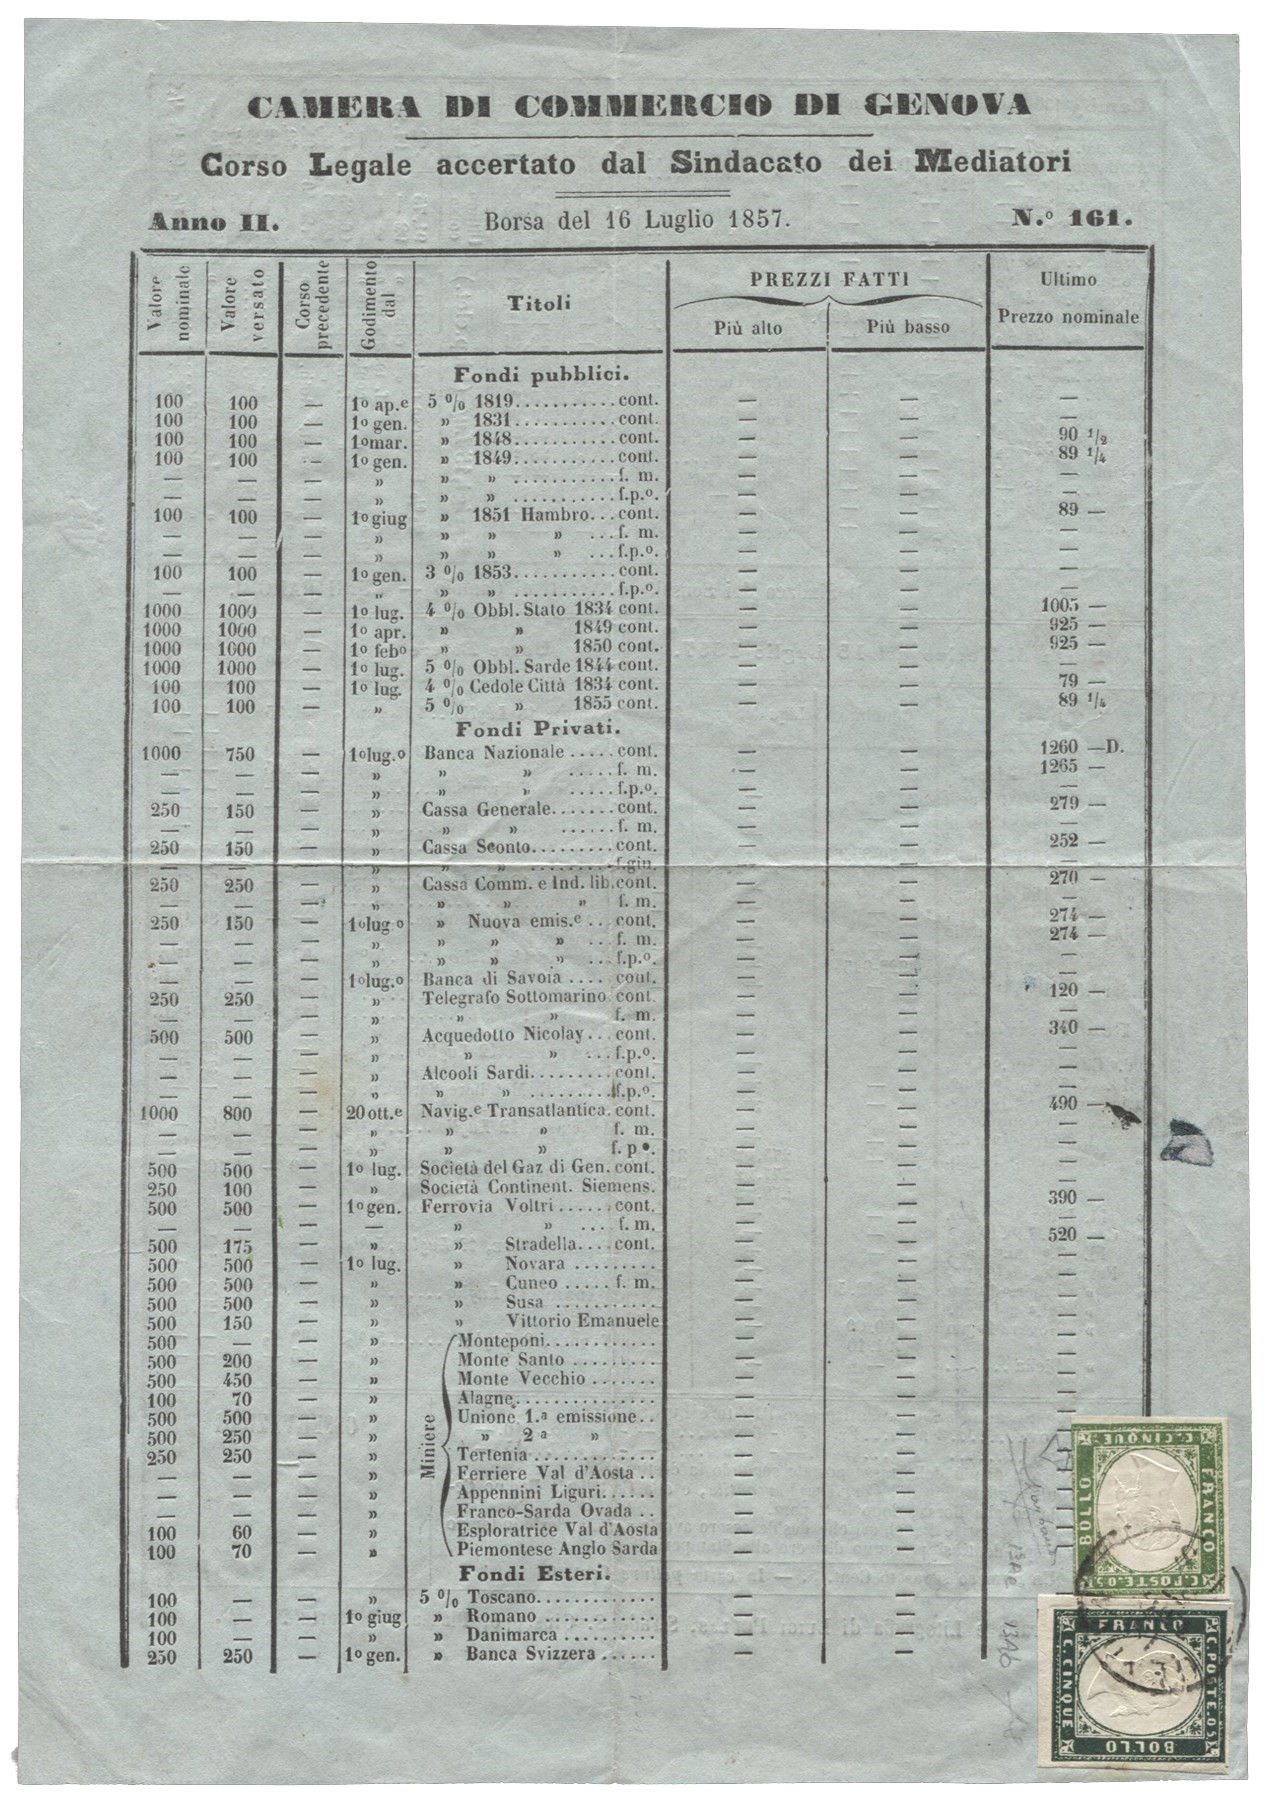 CAMERA DI COMMERCIO DI GENOVA
Corso Legale accertato dal Sindacato dei Mediatori
Anno II. Borsa del 16 Luglio 1857. N.º 161.
Valore nominale Valore versato Corso precedente Godimento dal Titoli PREZZI FATTI Più alto Più basso Ultimo Prezzo nominale
Fondi pubblici.
100 100 — 1º ap.e 5 % 1819........... cont. — — —
100 100 — 1º gen. » 1831........... cont. — — —
100 100 — 1º mar. » 1848........... cont. — — 90 1/2
100 100 — 1º gen. » 1849........... cont. — — 89 1/4
— — — » » » ........... f. m. — — —
— — — » » » ........... f.p.º. — — —
100 100 — 1º giug » 1851 Hambro... cont. — — 89 —
— — — » » » » ... f. m. — — —
— — — » » » » ... f.p.º. — — —
100 100 — 1º gen. 3 % 1853........... cont. — — —
— — — » » » ........... f.p.º. — — —
1000 1000 — 1º lug. 4 % Obbl. Stato 1834 cont. — — 1005 —
1000 1000 — 1º apr. » » 1849 cont. — — 925 —
1000 1000 — 1º febº » » 1850 cont. — — 925 —
1000 1000 — 1º lug. 5 % Obbl. Sarde 1844 cont. — — —
100 100 — 1º lug. 4 % Cedole Città 1834 cont. — — 79 —
100 100 — » 5 % » 1855 cont. — — 89 1/4
Fondi Privati.
1000 750 — 1º lug.º Banca Nazionale ..... cont. — — 1260 —D.
— — — » » » ..... f. m. — — 1265 —
— — — » » » ..... f.p.º. — — —
250 150 — » Cassa Generale....... cont. — — 279 —
— — — » » » ...... f. m. — — —
250 150 — » Cassa Sconto......... cont. — — 252 —
— — — » » » ......... f.gin. — — —
250 250 — » Cassa Comm. e Ind. lib. cont. — — 270 —
— — — » » » » f. m. — — —
250 150 — 1º lugº » Nuova emis.e .. cont. — — 274 —
— — — » » » » ... f. m. — — 274 —
— — — » » » » ... f.p.º. — — —
— — — 1º lug.º Banca di Savoia .... cont. — — —
250 250 — » Telegrafo Sottomarino cont. — — 120 —
— — — » » » f. m. — — —
500 500 — » Acquedotto Nicolay... cont. — — 340 —
— — — » » » ... f.p.º. — — —
— — — » Alcooli Sardi......... cont. — — —
— — — » » » ......... f.p.º. — — —
1000 800 — 20 ott.e Navig.e Transatlantica. cont. — — 490 —
— — — » » » f. m. — — —
— — — » » » f. p º. — — —
500 500 — 1º lug. Società del Gaz di Gen. cont. — — —
250 100 — » Società Continent. Siemens. — — —
500 500 — 1º gen. Ferrovia Voltri ...... cont. — — 390 —
— — — — » » .... f. m. — — —
500 175 — » » Stradella.... cont. — — 520 —
500 500 — 1º lug. » Novara ......... — — —
500 500 — » » Cuneo ..... f. m. — — —
500 500 — » » Susa ........... — — —
500 150 — » » Vittorio Emanuele — — —
Miniere
500 — — » Monteponi............ — — —
500 200 — » Monte Santo ......... — — —
500 450 — » Monte Vecchio ....... — — —
100 70 — » Alagne............... — — —
500 500 — » Unione 1.a emissione.. — — —
500 250 — » » 2 a » — — —
250 250 — » Tertenia ............. — — —
— — — » Ferriere Val d'Aosta .. — — —
— — — » Appennini Liguri...... — — —
— — — » Franco-Sarda Ovada .. — — —
100 60 — » Esploratrice Val d'Aosta — — —
100 70 — » Piemontese Anglo Sarda — — —
Fondi Esteri.
100 — — » 5 % Toscano............ — —
100 — — 1º giug » Romano ............ — —
100 — — » » Danimarca .......... — —
250 250 — 1º gen. » Banca Svizzera ...... — —
C. CINQUE
BOLLO
FRANCO
C. POSTE.05
FRANCO
C. CINQUE
C. POSTE.05
BOLLO
13Ae
13Ab